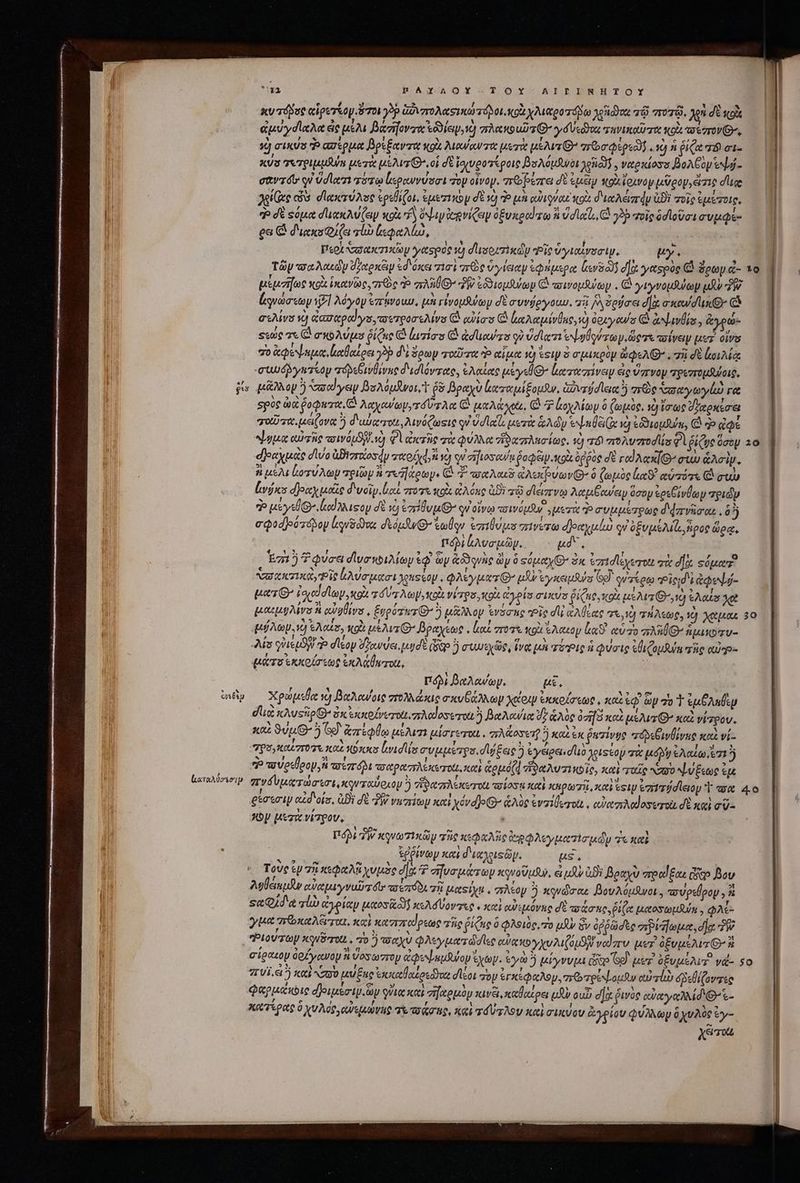 12 ΠΑΥΛΟΥ ΤΟΥ ΑΙΓΙΝΗΤΟΥ
αἱρετέον. καὶ χλιαροτέρῳ χρῆσθαι τῷ ποτῷ. χρὴ δὲ καὶ
ἀμύγδαλα εἰς μέλι βάπτοντα ἐσθίειν, καὶ πλακοῦντος γεύεσθαι τηνικαῦτα καὶ πέπονος,
καὶ σικύου τὸ σπέρμα βρέξαντα καὶ λιάναντα μετὰ μέλιτος προσφέρεσθαι. καὶ ἡ ῥίζα τοῦ σι-
κύου τετριμμένη μετὰ μέλιτος. οἱ δὲ ἰσχυροτέροις βουλόμενοι χρῆσθαι, ναρκίσσου βολβὸν ἑψή-
σαντες ἐν ὕδατι τούτῳ κεραννύουσι τὸν οἶνον. πρὸ δὲ ἐμεῖν καὶ ἴρινον μύρον,
χρίσας τοὺς δακτύλους ἐρεθίζοι. ἐμετικὸν δὲ καὶ τὸ μὴ συνεῖναι καὶ διαλείπειν ἐπὶ τοῖς ἐμέτοις.
τὸ δὲ στόμα διακλύζειν καὶ τὴν ὄψιν ἀπονίζειν ὀξυκράτῳ ἢ ὕδατι. καὶ γὰρ τοῖς ὀδοῦσι συμφέ-
ρει καὶ διακουφίζει τὴν κεφαλήν.
Περὶ ὑπακτικῶν γαστρὸς καὶ διουρητικῶν τοῖς ὑγιαίνουσιν. μγ.
Τῶν παλαιῶν ἐξαρκεῖν ἐδόκει τισὶ πρὸς ὑγίειαν ἐφήμερα κενοῦσθαι διὰ γαστρὸς καὶ οὔρων ἀ- 10
ἱκανῶς, πρὸς τὸ πλῆθος τῶν ἐσθιομένων καὶ πινομένων. καὶ γιγνομένων μὲν τῶν
κενώσεων κατὰ λόγον ἐπῄνουν, μὴ γινομένων δὲ συνήργουν. τῇ μὲν οὐρήσει διὰ σκάνδικος καὶ
σελίνου καὶ ἀσπαράγου, πετροσελίνου καὶ ἀνίσου καὶ καλαμίνθης, καὶ ὀριγάνου καὶ ἀψινθίου, ἀγρώ-
στεώς τε καὶ σκολύμου ῥίζης καὶ κυτίσου καὶ ἀδιάντου ἐν ὕδατι ἑψηθέντων, ὥστε πίνειν μετ' οἴνου
τὸ ἀφέψημα. καθαίρει γὰρ δι' οὔρων ταῦτα τὸ αἷμα καὶ ἔστιν οὐ σμικρὸν ὄφελος. τῇ δὲ κοιλίᾳ
συνεργητέον τερεβινθίνης διδόντας, ἐλαίας μέγεθος καταπίνειν εἰς ὕπνον τρεπομένοις.
μᾶλλον δὲ ὑπάγειν βουλόμενοι, νίτρου βραχὺ καταμίξομεν, ἐπιτήδεια δὲ πρὸς ὑπαγωγὴν γα
στρὸς ὠὰ ῥοφητά. καὶ λαχάνων, τεῦτλα καὶ μαλάχαι, καὶ τῶν κοχλίων ὁ ζωμός. καὶ ἴσως ἐξαρκέσει
ταῦτα. μείζονα δὲ δύναται, λινόζωστις ἐν ὕδατι μετὰ ἁλῶν ἑψηθεῖσα καὶ ἐσθιομένη, καὶ τὸ ἀφέ
ψημα αὐτῆς πινόμενον, καὶ τῆς ἀκτῆς τὰ φύλλα παραπλησίως. καὶ τοῦ πολυποδίου τῆς ῥίζης ὅσον 20
δραχμὰς δύο ἐπιπάσσειν ταρίχῳ, ἢ καὶ ἐν πτισάνῃ ῥοφεῖν. καὶ ὀρρὸς δὲ γάλακτος σὺν ἁλσίν.
ἢ μέλι κοτυλῶν τριῶν ἢ τεττάρων. καὶ τῶν παλαιῶν ἀλεκτρυόνων ὁ ζωμὸς καθ' αὑτόν τε καὶ σὺν
κνήκου δραχμαῖς δυοῖν. καί ποτε καὶ ἀλόης ἐπὶ τῷ δείπνῳ λαμβάνειν ὅσον ἐρεβίνθων τριῶν
τὸ μέγεθος. κάλλιστον δὲ καὶ ἐπίθυμος ἐν οἴνῳ πινόμενος, μετὰ τὸ συμμέτρως δειπνῆσαι. ὁ δὲ
σφοδρότερον κενοῦσθαι δεόμενος ἕωθεν ἐπιθύμου πινέτω δραχμὴν ἐν ὀξυμέλιτι, ἦρος ὥρᾳ.
Περὶ κλυσμῶν. μδ.
Ἐπὶ δὲ τῶν φύσει δυσκοιλίων ἐφ' ὧν ἀσθενὴς ὢν ὁ στόμαχος οὐκ ἐπιδέχεται τὰ διὰ στόματος
ὑπακτικὰ, τοῖς κλύσμασι χρηστέον. φλέγματος μὲν ἐγκειμένου τοῖς ἐντέροις διὰ ἀφεψή-
ματος ἰσχάδων, καὶ τεύτλων, καὶ νίτρου, καὶ ἀγρίου σικύου ῥίζης, καὶ μέλιτος, καὶ ἐλαίου χα
μαιμηλίνου ἢ ἀνηθίνου, ξηρότητος δὲ μᾶλλον ἐνούσης τοῖς δι' ἀλθαίας τε, καὶ τήλεως, καὶ χαμαι 30
μήλων, καὶ ἐλαίου, καὶ μέλιτος βραχέως. καί ποτε καὶ ἔλαιον καθ' αὑτὸ πλῆθος ἡμικοτυ-
λίου ἐνιέμενον τὸ δέον ἐξανύει, μηδὲ τούτῳ δὲ συνεχῶς, ἵνα μὴ τούτοις ἡ φύσις ἐθιζομένη τῆς αὐτο-
μάτου ἐκκρίσεως ἐκλάθηται.
Περὶ βαλάνων. με.
Χρώμεθα καὶ βαλάνοις πολλάκις σκυβάλων χάριν ἐκκρίσεως, καὶ ἐφ' ὧν τὸ ἐμβληθὲν
διὰ κλυστῆρος οὐκ ἐκκρίνεται. πλάσσεται δὲ βαλάνια ἐξ ἁλὸς ὀπτοῦ καὶ μέλιτος καὶ νίτρου.
καὶ θύμος δὲ σὺν ἀπέφθῳ μέλιτι μίσγεται. πλάσσεται δὲ καὶ ἐκ ῥητίνης τερεβινθίνης καὶ νί-
τρου, καί ποτε καὶ κόκκου κνιδίου συμμέτρου. δήξεις δὲ ἐγείρει. διὸ χριστέον τὰ μόρια ἐλαίῳ. ἔτι δὲ
τὸ πύρεθρον, ἢ πέπερι παραπλέκεται, καὶ ἁρμόζει παραλυτικοῖς, καὶ ταῖς ὑπὸ ψύξεως ἐμ
πνευματώσεσι, κενταύριον δὲ παραπλέκεται πίσσῃ καὶ κηρωτῇ, καὶ ἔστιν ἐπιτήδειον 40
αἰδοῖς, ἐπὶ δὲ τῶν νηπίων καὶ χόνδρος ἁλὸς ἐντίθεται, ἀναπλάσσεται δὲ καὶ σῦ-
κον μετὰ νίτρου.
Περὶ τῶν κενωτικῶν τῆς κεφαλῆς ἀποφλεγματισμῶν τε καὶ
ἐρρίνων καὶ διαχρισῶν. μς.
Τοὺς ἐν τῇ κεφαλῇ χυμοὺς διὰ τῶν πτυσμάτων κενοῦμεν, εἰ μὲν ἐπὶ βραχὺ πρᾶξαι τοῦτο βου
ληθείημεν ἀναμιγνύντες πέπερι τῇ μαστίχῃ. πλέον δὲ κενῶσαι βουλόμενοι, πύρεθρον, ἢ
σταφίδα τὴν ἀγρίαν μασᾶσθαι κελεύοντες. καὶ ἀνεμώνης δὲ πάσης, ῥίζα μασωμένη, φλέ-
γμα προκαλεῖται. καὶ καππάρεως τῆς ῥίζης ὁ φλοιός. τὸ μὲν οὖν ὀρρῶδες περίττωμα, διὰ τῶν
τοιούτων κενοῦται. τὸ δὲ παχὺ φλεγματῶδες ἀνακογχυλιζόμενον νᾶπυ μετ' ὀξυμέλιτος ἢ
σίραιον ὀρίγανον ἢ ὕσσωπον ἀφεψημένον ἔχων. ἐγὼ δὲ μίγνυμι τοῦτο μετ' ὀξυμέλιτος νά- 50
πυϊ. εἰ δὲ καὶ ὑπὸ μύξης ἐκκαθαίρεσθαι δέοι τὸν ἐγκέφαλον, προτρέψομεν αὐτὴν ἐρεθίζοντες
φαρμάκοις δριμέσιν. ὧν ἔνια καὶ πταρμὸν κινεῖ. καθαίρει μὲν οὖν διὰ ῥινὸς ἀναγαλλίδος ἑ-
κατέρας ὁ χυλὸς, ἀνεμώνης τε πάσης, καὶ τεύτλου καὶ σικύου ἀγρίου φύλλων ὁ χυλὸς ἐγ-
χεῖται